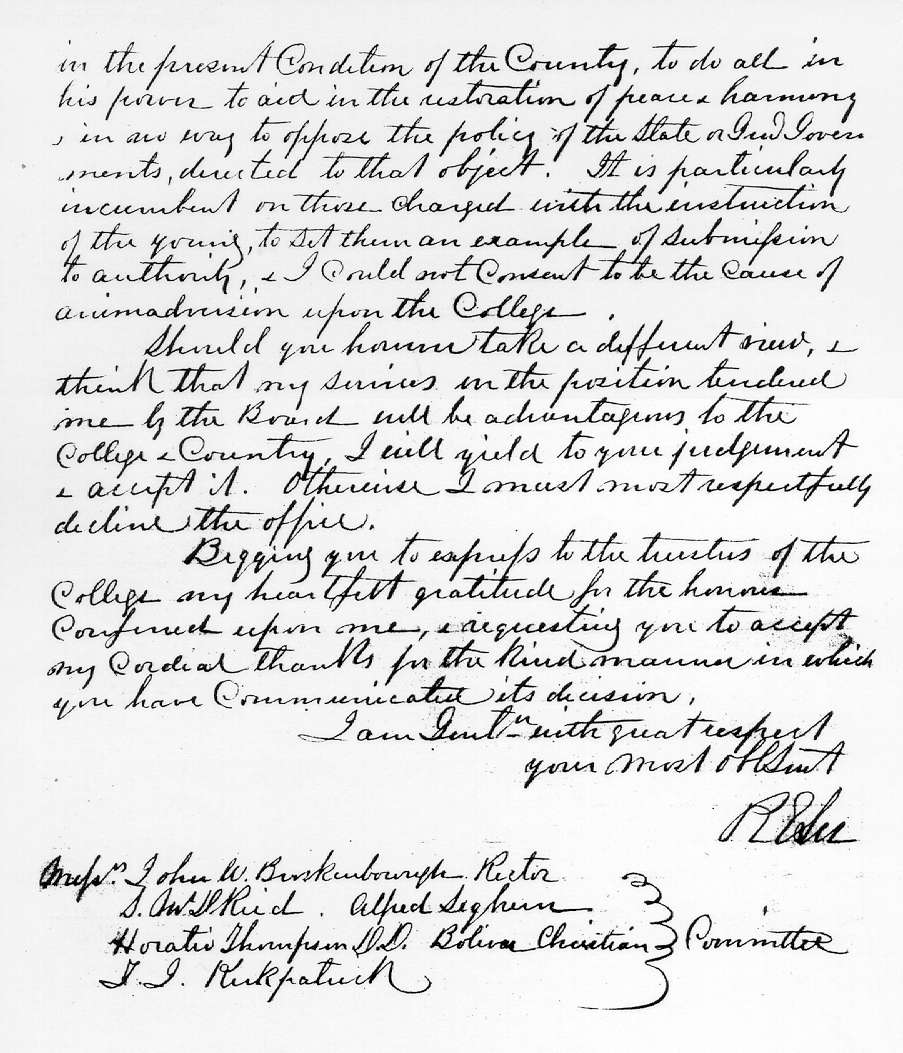 in the present Condition of the County, to do all in
his power to aid in the restoration of peace & harmony
& in no way to oppose the policy of the State or Genl Govern
ments, directed to that object. It is particularly
incumbent on those charged with the instruction
of the young, to set them an example of submission
to authority, & I Could not Consent to be the Cause of
animadversion upon the College.
Should you however take a different view, &
think that my services in the position tendered
me by the Board will be advantagous to the
College & Country, I will yield to your judgement
& accept it. Otherwise I must most respectfully
decline the office.
Begging you to express to the trustees of the
College my heartfelt gratitude for the honour
Conferred upon me, & requesting you to accept
my Cordial thanks for the kind manner in which
you have Communicated its decision,
I am Gentn with great respect
your most obt Servt
R E Lee
Messrs John W. Brockenbrough Rector
S. McD Reid Alfred Leyburn
Horatio Thompson D.D. Bolivar Christian Committee
T. J. Kirkpatrick